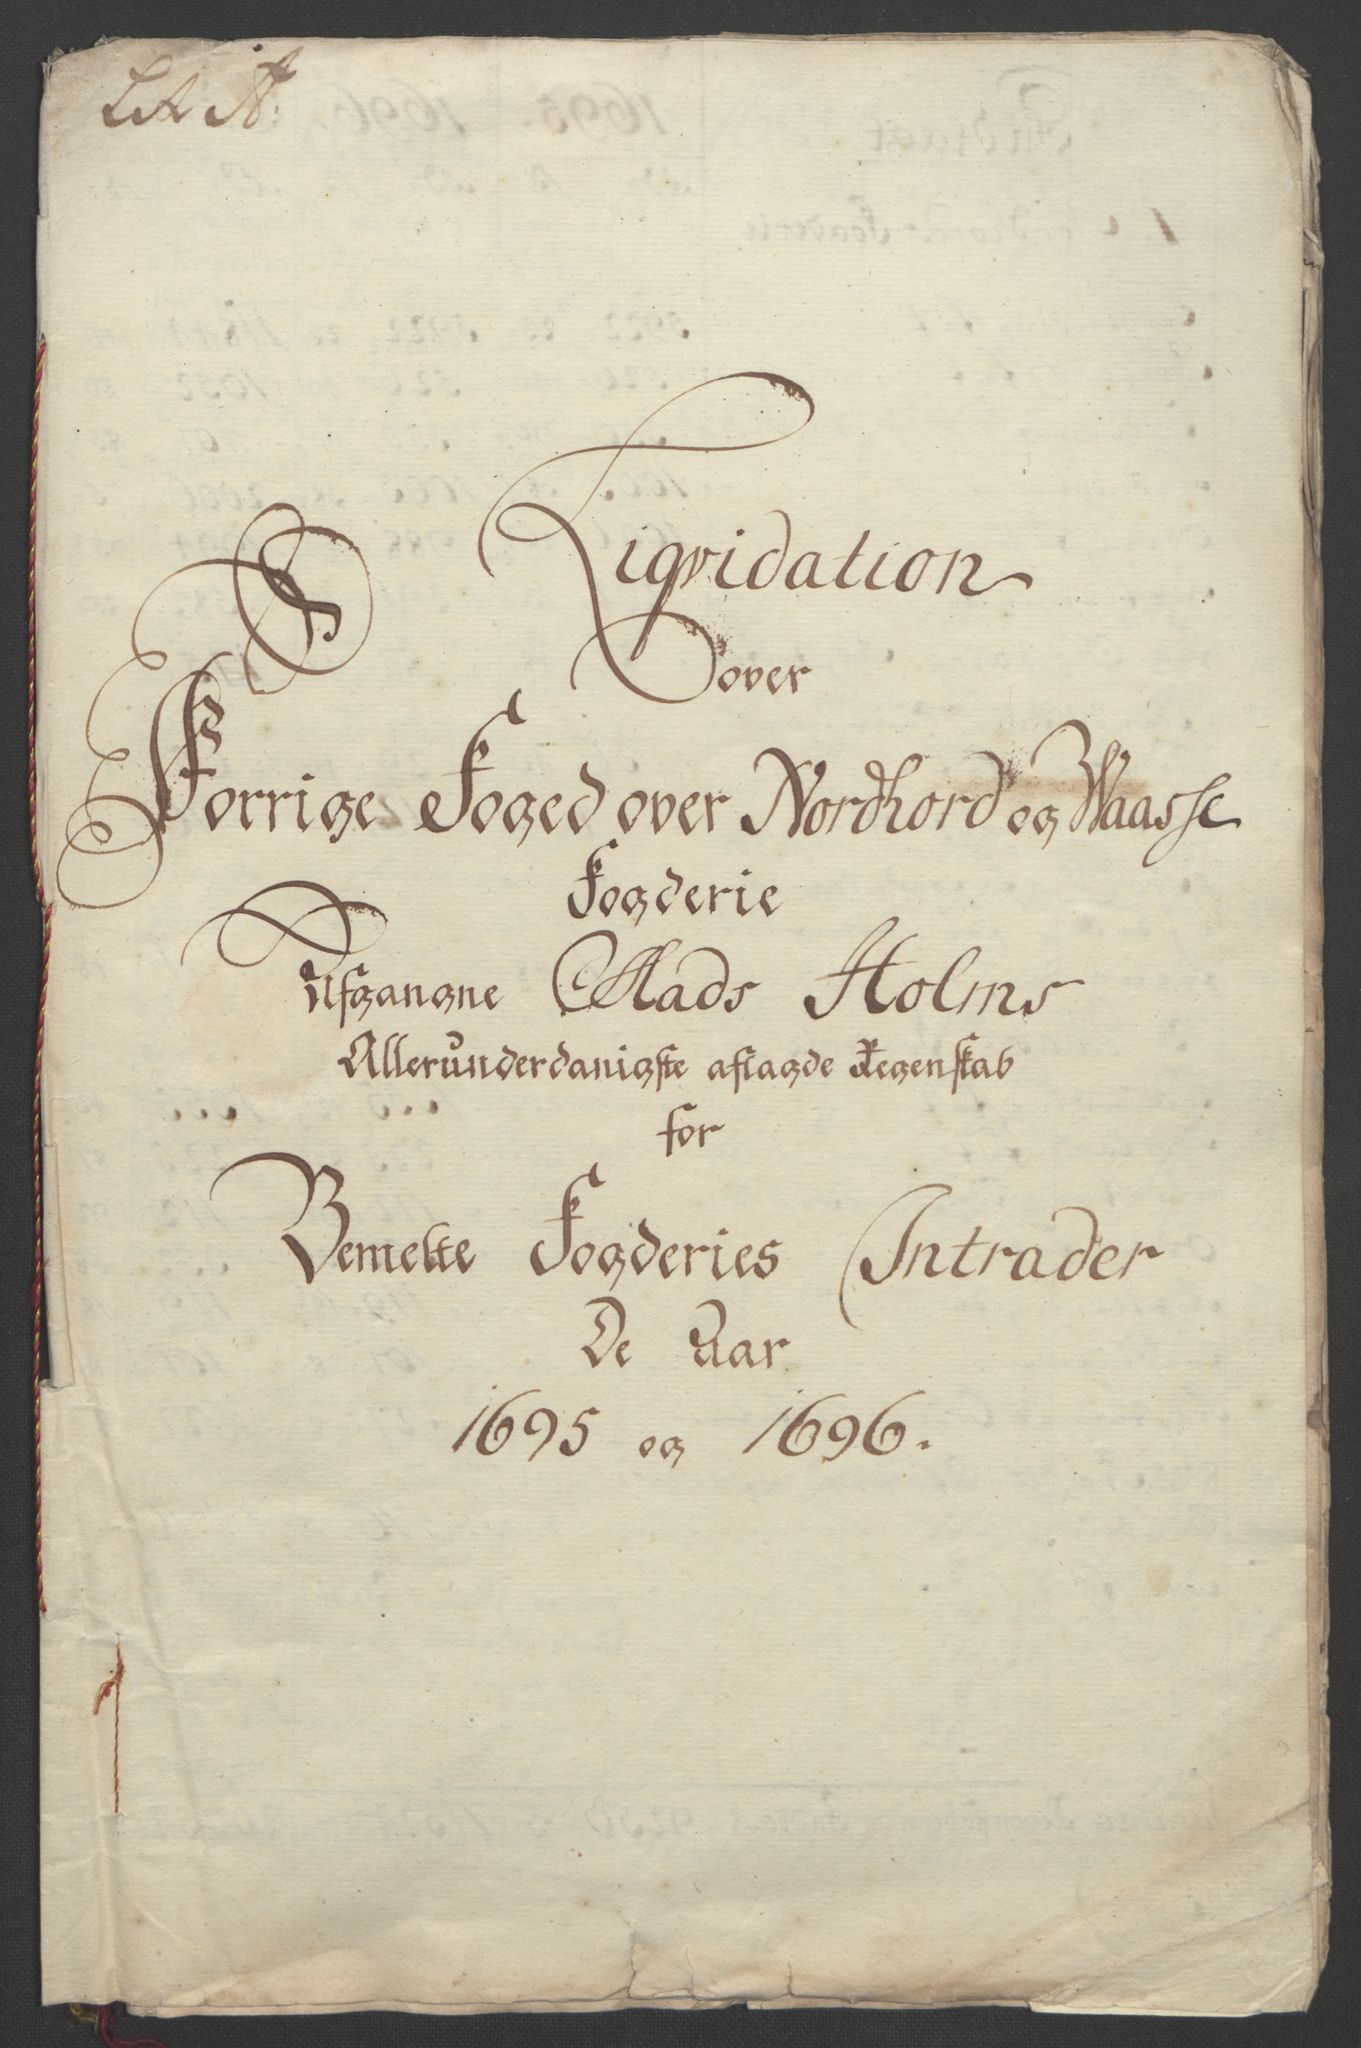 Lit A:
Liqvidation
over
Forrige Foged over Nordhord og Waasse
Fogderie
Afgangne Mads Holms
Allerunderdanigste aflagde Regenskab
for
Bemelte Fogderies Intrader
De Aar
1695 og 1696.